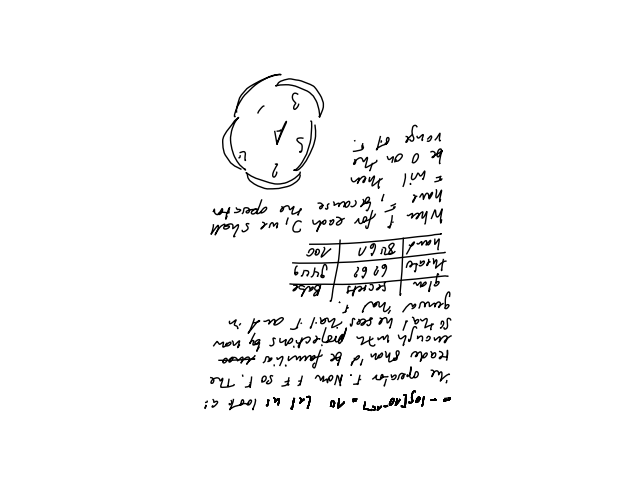 = - log[10^-157] = 10 Let us look at
the operator F. Now F F so F. The
reader should be familiar
enough with projections by now
so that he sees that F and in
general that F.
glan | secrets | Babe
threate | 6962 | 9449
hard | 8461 | 100
When f for each D, we shall
have F, because the operator
F will then
be 0 on the
range of F.